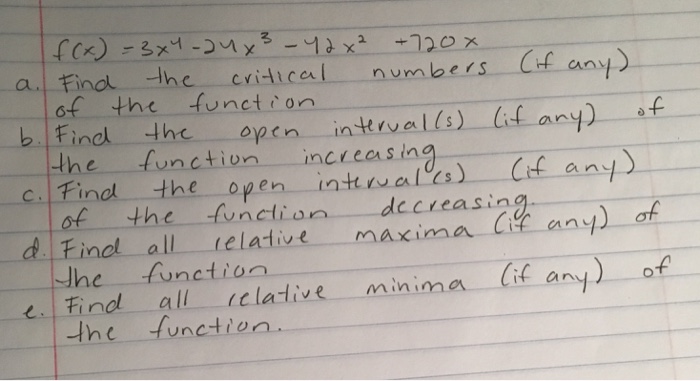 f(x) = 3x⁴ - 24x³ - 42x² + 720x
a. Find the critical numbers (if any)
of the function
b. Find the open interval(s) (if any) of
the function increasing
c. Find the open interval(s) (if any)
of the function decreasing.
d. Find all relative maxima (if any) of
the function
e. Find all relative minima (if any) of
the function.